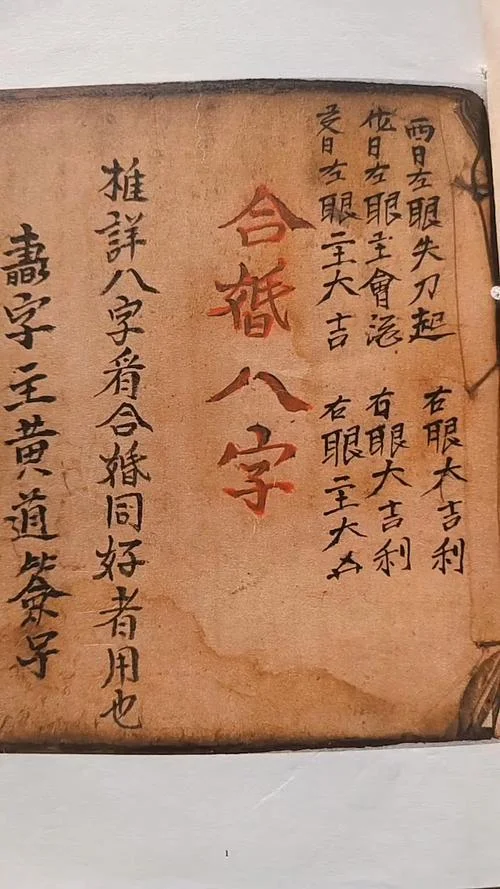 酉日左眼失刀起 右眼大吉利
戌日左眼主會 右眼大吉利
亥日左眼主大吉 右眼主大凶
合婚八字
推詳八字看合婚同好者用也
字主黄道
1